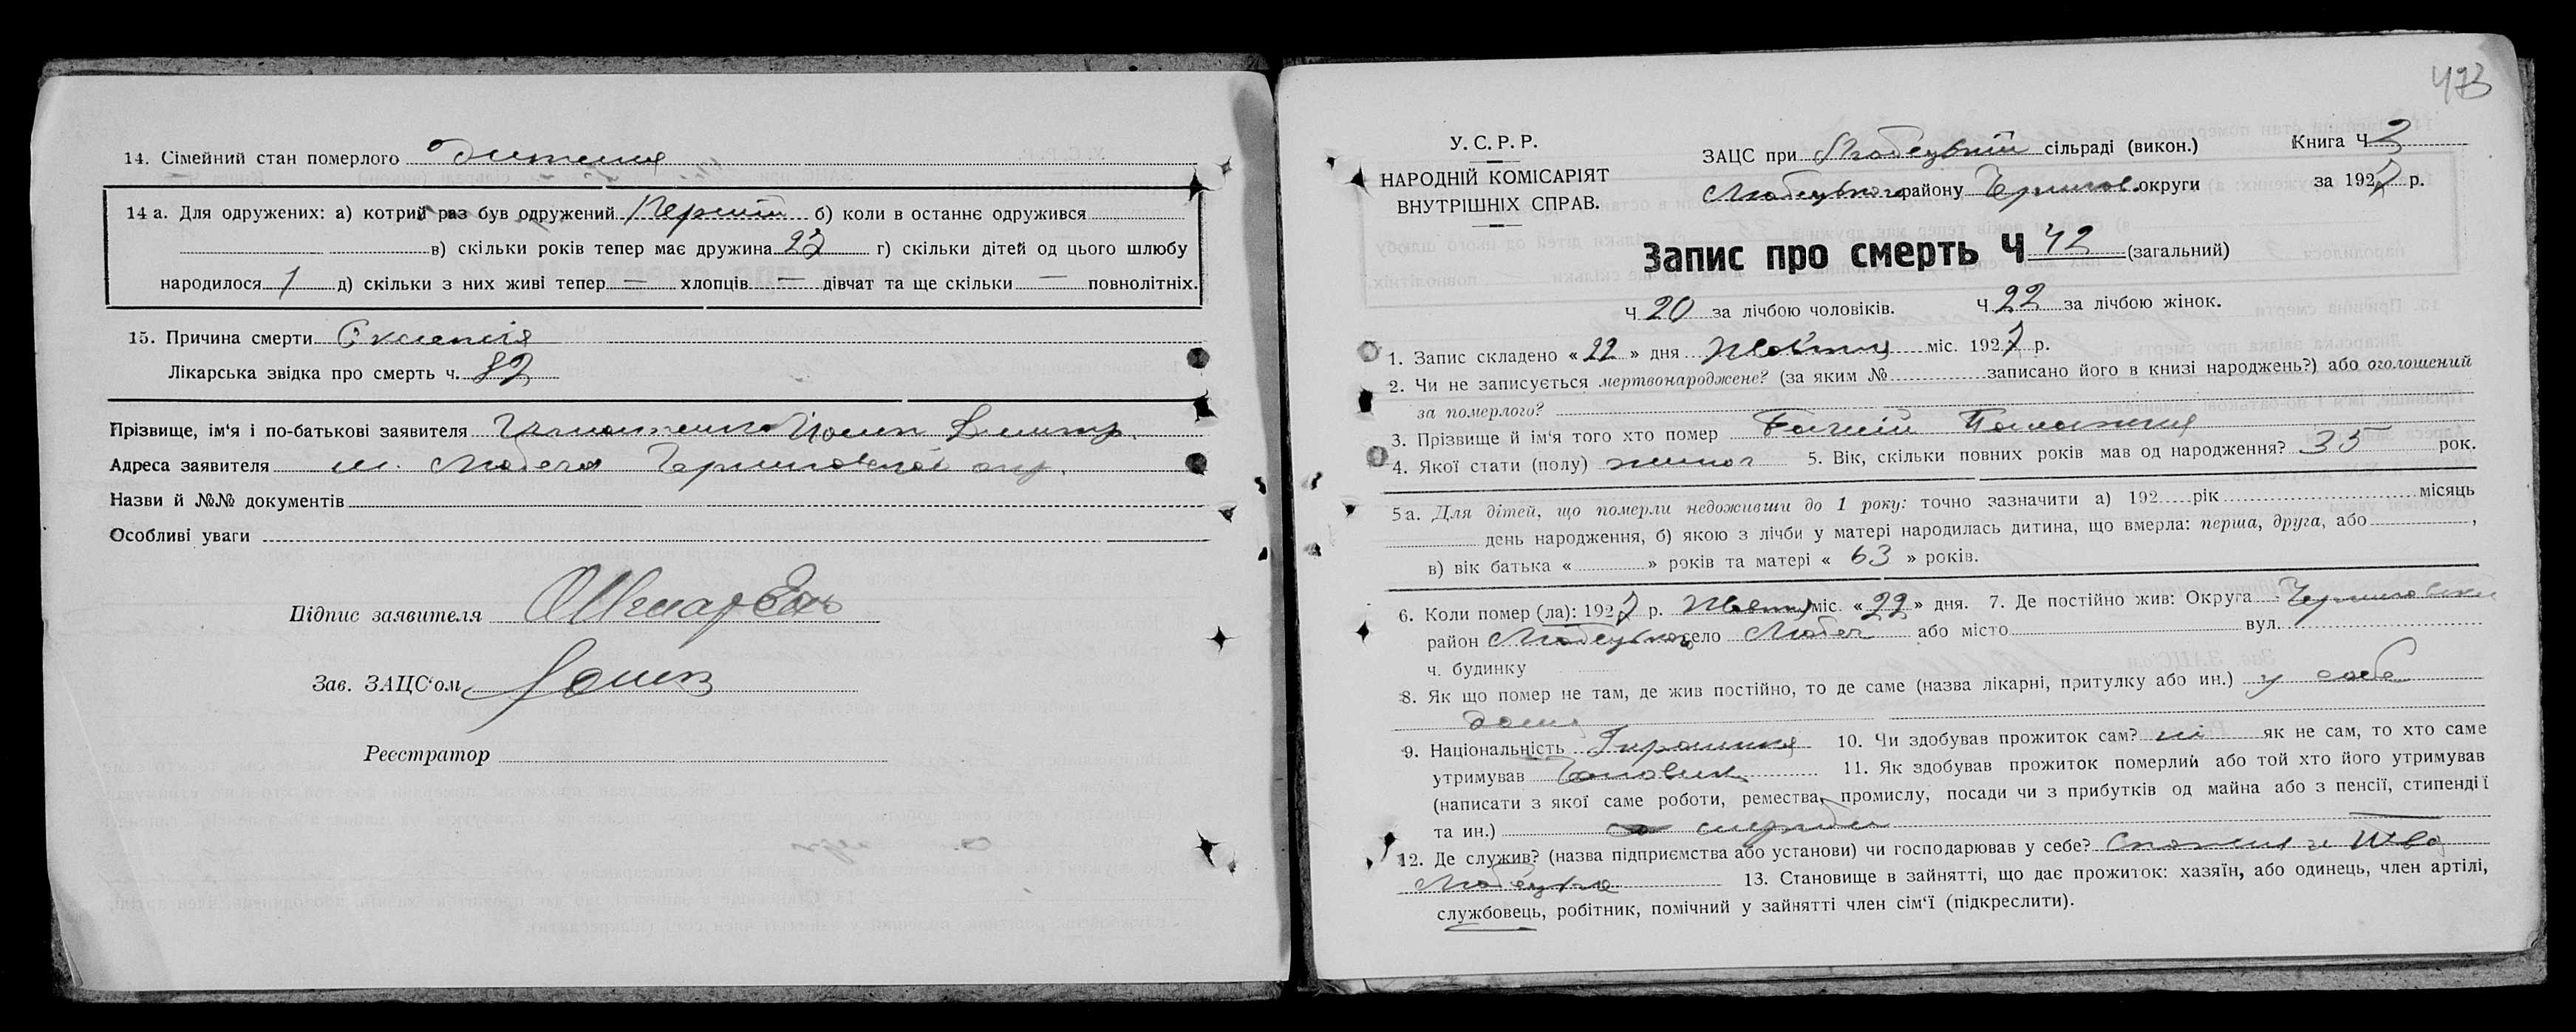 14. Сімейний стан померлого
14 а. Для одружених: а) котрий раз був одружений Перший б) коли в останнє одружився
в) скільки років тепер має дружина 27 г) скільки дітей од цього шлюбу
народилося 1 д) скільки з них живі тепер — хлопців — дівчат та ще скільки — повнолітніх.
15. Причина смерти
Лікарська звідка про смерть ч. 82
Прізвище, ім'я і по-батькові заявителя
Адреса заявителя м. Любеч
Назви й №№ документів
Особливі уваги
Підпис заявителя
Зав. ЗАЦС'ом
Реєстратор
473
У. С. Р. Р.
НАРОДНІЙ КОМІСАРІЯТ
ВНУТРІШНІХ СПРАВ.
ЗАЦС при Любецькій сільраді (викон.) Книга Ч 3
Любецького району Чернигов. округи за 1927 р.
Запис про смерть Ч 42 (загальний)
Ч 20 за лічбою чоловіків. Ч 22 за лічбою жінок.
1. Запис складено «22» дня Жовтня міс. 1927 р.
2. Чи не записується мертвонароджене? (за яким № записано його в книзі народжень?) або оголошений
за померлого?
3. Прізвище й ім'я того хто помер
4. Якої стати (полу) жиноч 5. Вік, скільки повних років мав од народження? 35 рок.
5а. Для дітей, що померли недоживши до 1 року: точно зазначити а) 192 рік місяць
день народження, б) якою з лічби у матері народилась дитина, що вмерла: перша, друга, або ,
в) вік батька « » років та матері « 63 » років.
6. Коли помер (ла): 1927 р. Жовтн міс. «22» дня. 7. Де постійно жив: Округа
район Любецького село Любеч або місто вул.
ч. будинку
8. Як що помер не там, де жив постійно, то де саме (назва лікарні, притулку або ин.) у себе
дома
9. Національність 10. Чи здобував прожиток сам? ні як не сам, то хто саме
утримував Чоловик 11. Як здобував прожиток померлий або той хто його утримував
(написати з якої саме роботи, ремества, промислу, посади чи з прибутків од майна або з пенсії, стипендії
та ин.) служби
12. Де служив? (назва підприємства або установи) чи господарював у себе?
13. Становище в зайнятті, що дає прожиток: хазяїн, або одинець, член артілі,
службовець, робітник, помічний у зайнятті член сім'ї (підкреслити).